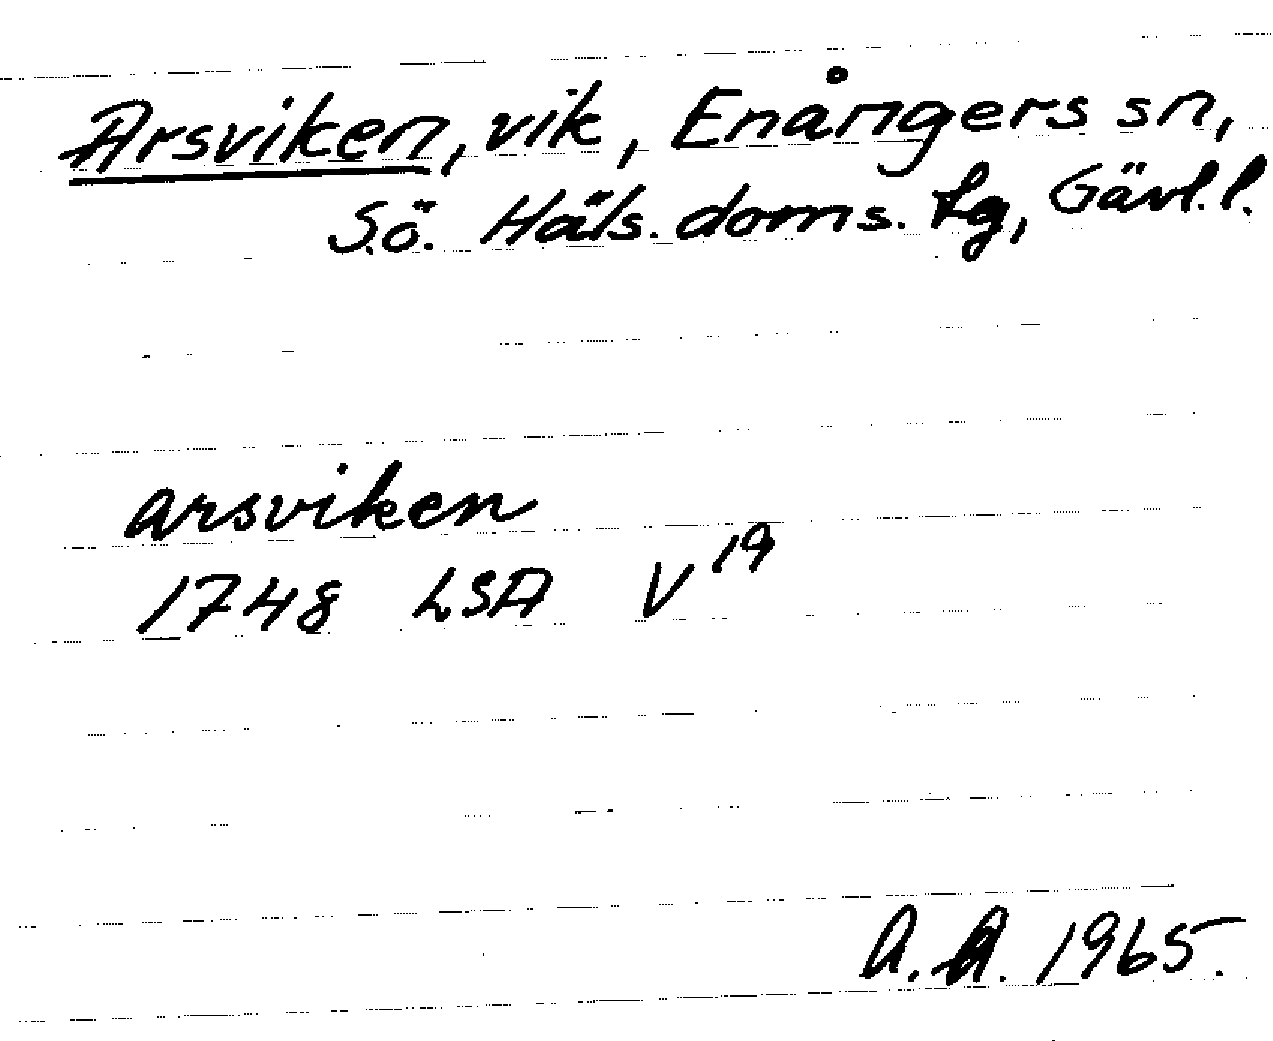 Arsviken, vik, Enångers sn,
S.ö. Häls. doms. tg, Gävl. l.
arsviken
1748 LSA V 19
A. A. 1965.